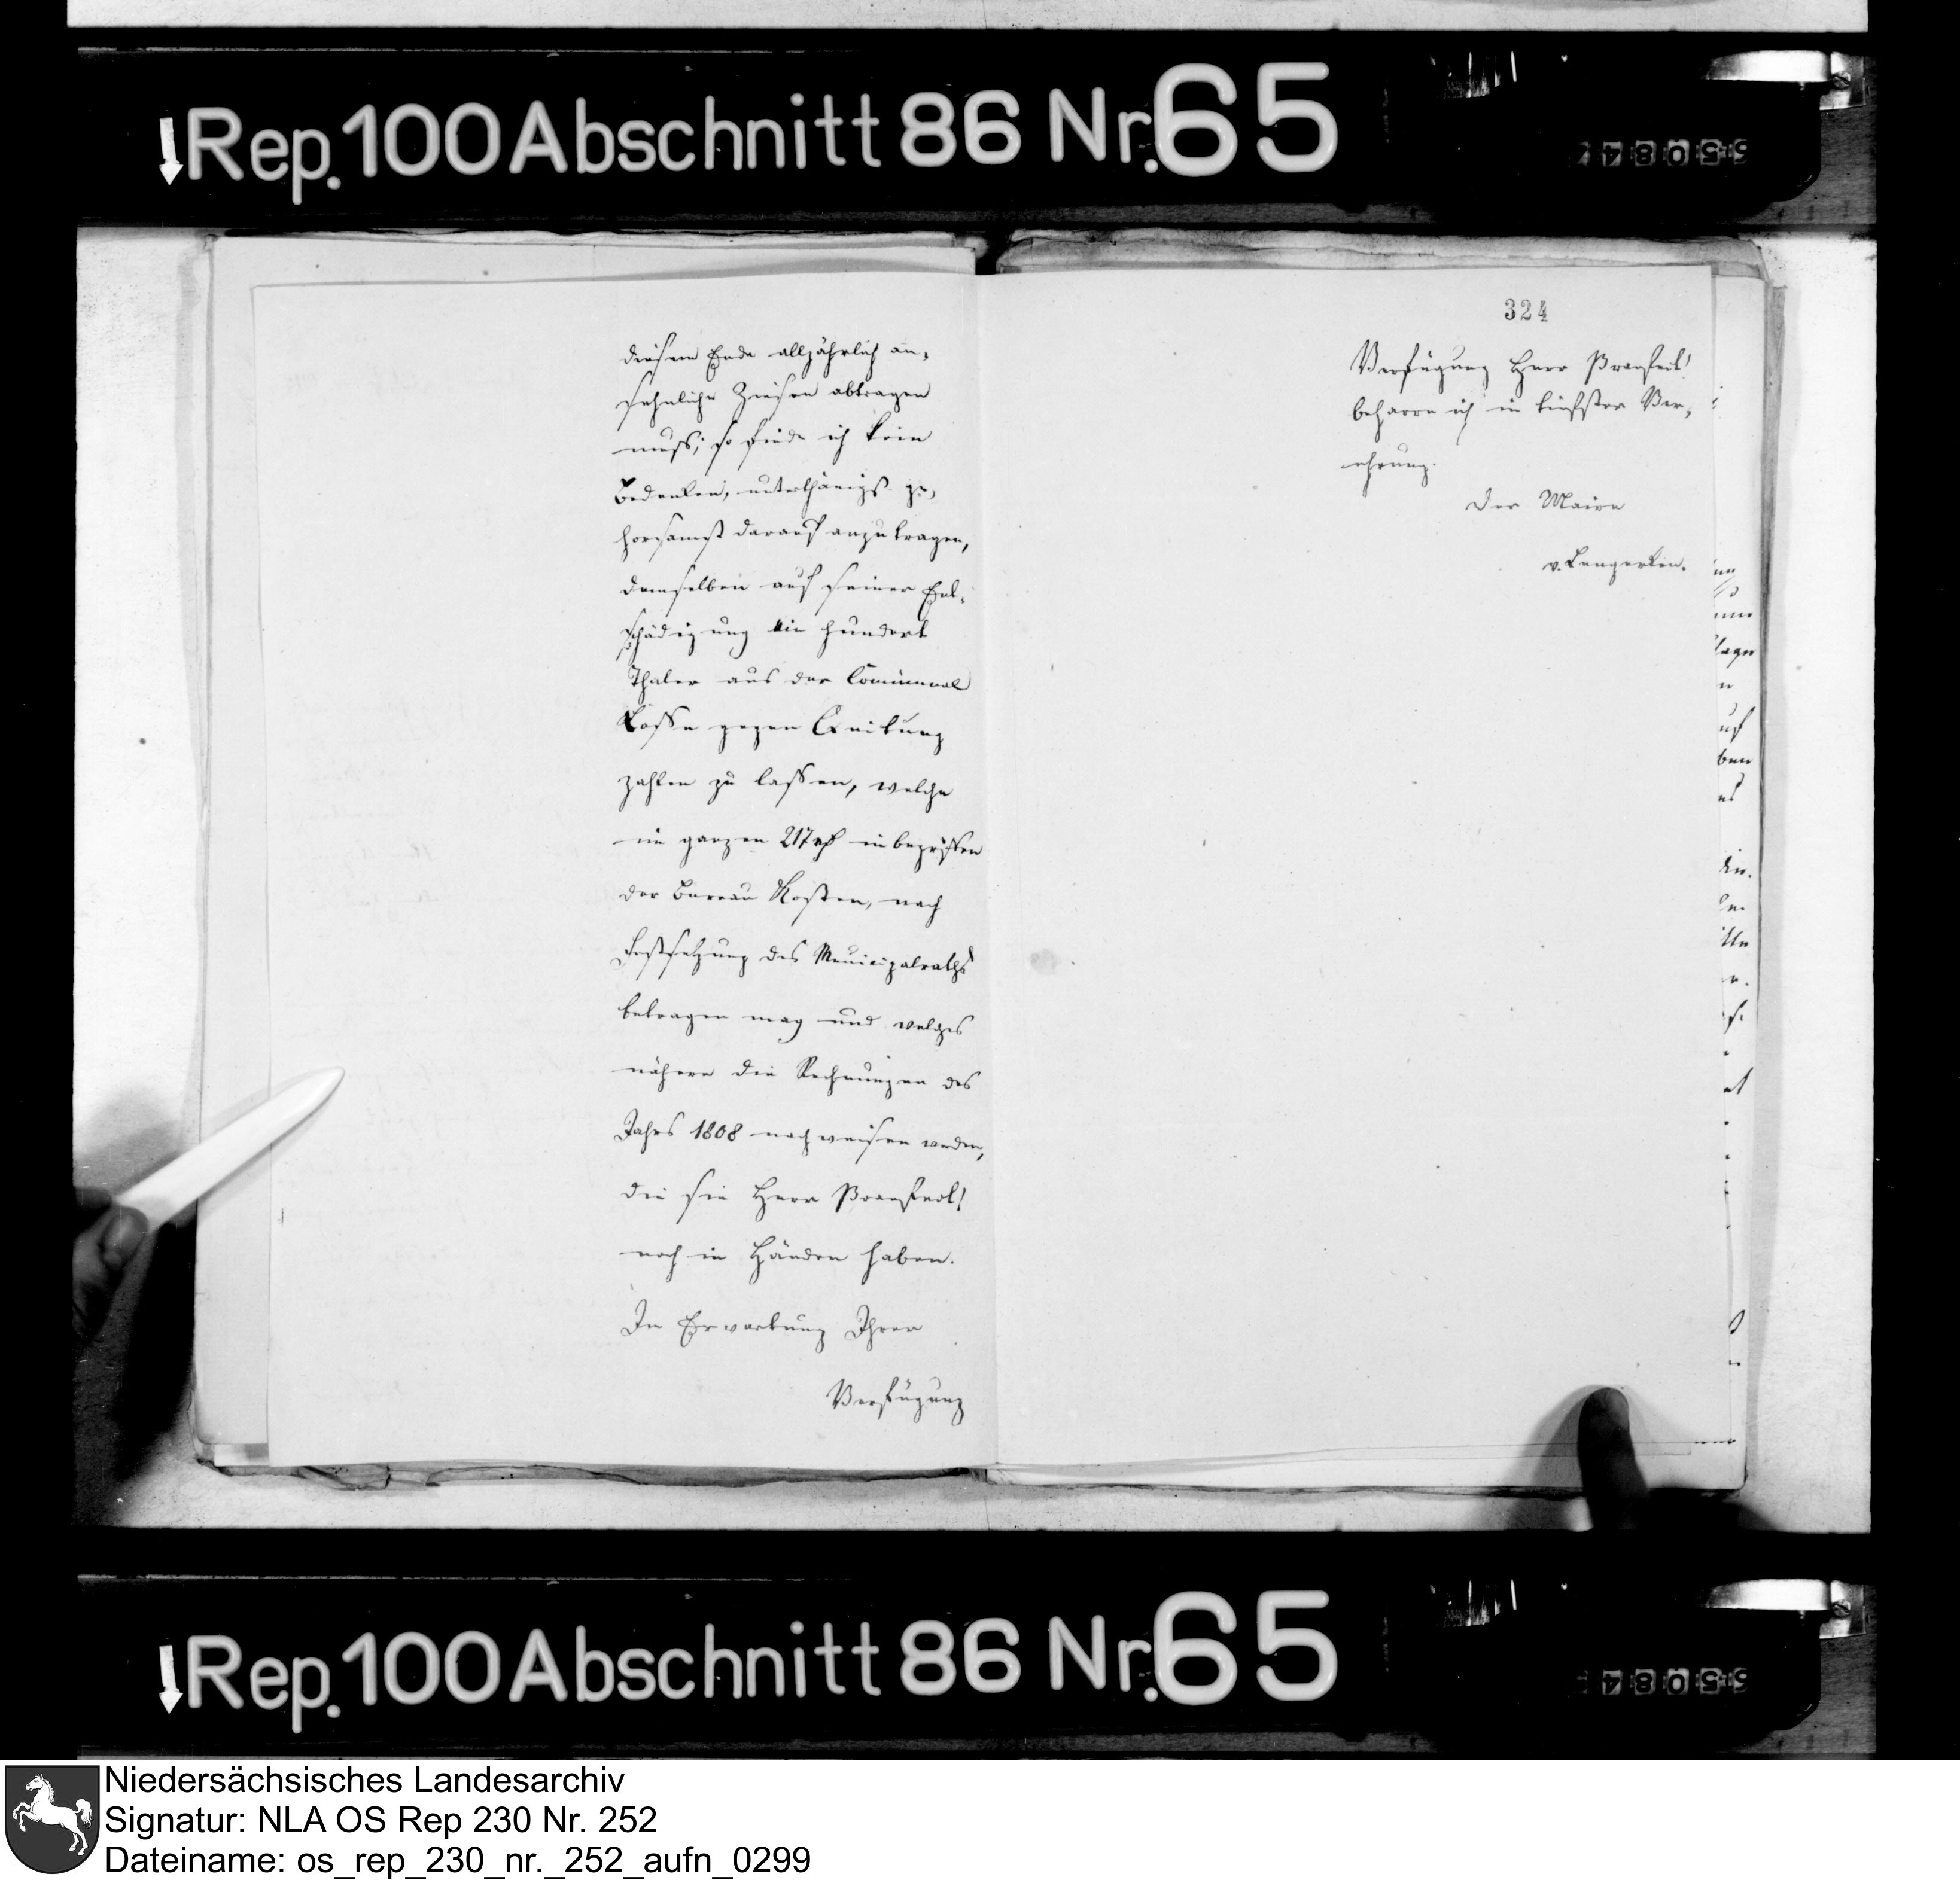 Rep. 100 Abschnitt 86 Nr. 65
diesem Ende alljährlich an,
sehnliche Zinsen abtragen
muß; so finde ich kein
Bedenken, unterthänigs ge,
horsamst darauf anzutragen,
demselben auf seiner Ent,
schädigung ein hundert
Thaler aus der Communal
Casse gegen Quitung
zahlen zu lassen, welche
im ganzen 217 rh inbegriffen
der Bureau Kosten, nach
Festsetzung des Municipalraths
betragen mag und welches
nähere die Rechnungen des
Jahrs 1808 nachweisen werden,
die sie Herr Praefect!
noch in Händen haben.
In Erwartung Ihrer
Verfügung
324
Verfügung Herr Praefect!
beharre ich in tiefster Ver,
ehrung.
Der Maire
v. Lengerken.
Rep. 100 Abschnitt 86 Nr. 65
Niedersächsisches Landesarchiv
Signatur: NLA OS Rep 230 Nr. 252
Dateiname: os_rep_230_nr._252_aufn_0299